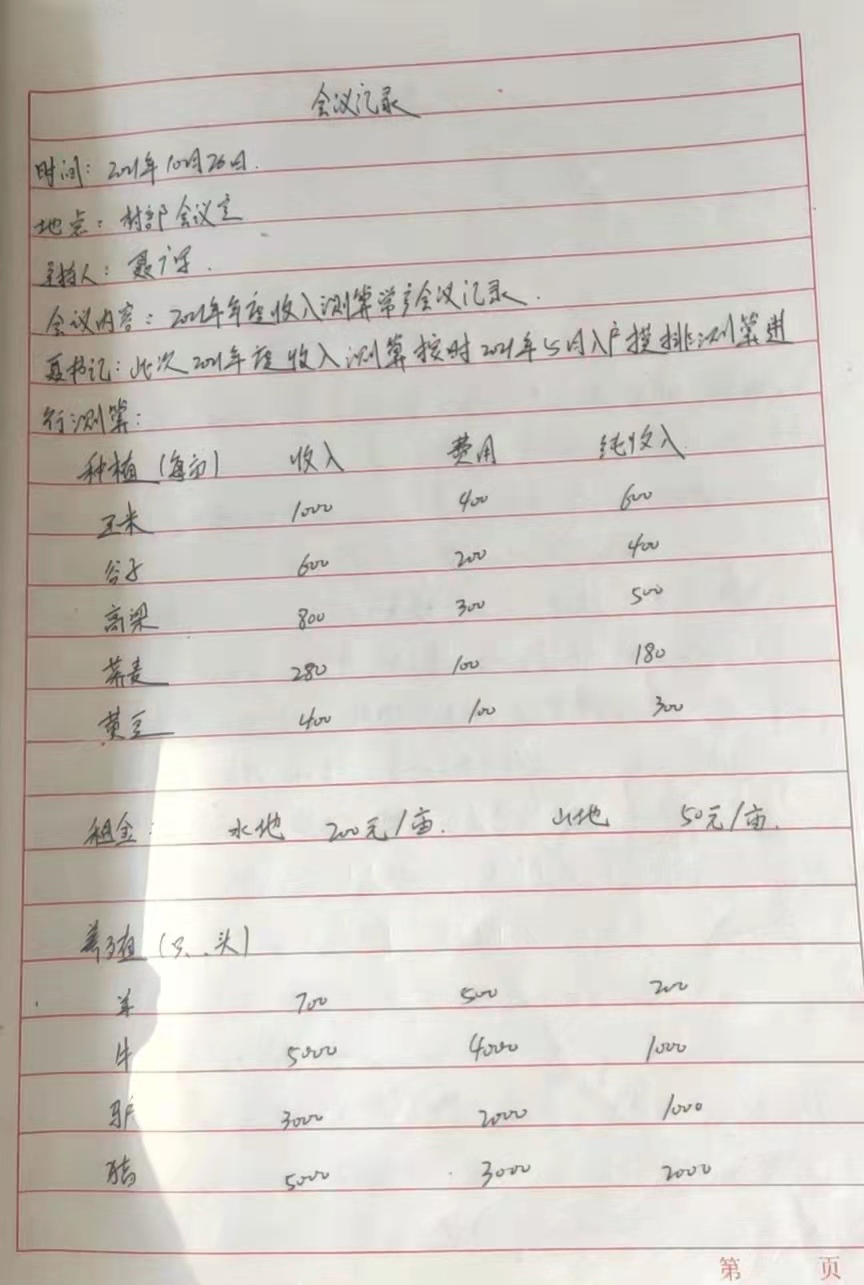 会议记录
时间：2021年10月26日.
地点：村部会议室
主持人：聂.
会议内容：2021年年度收入测算常会议记录.
聂书记：此次2021年度收入测算按时2021年5月入户摸排测算进
行测算：
种植（每亩） 收入 费用 纯收入
玉米 1000 400 600
谷子 600 200 400
高梁 800 300 500
荞麦 280 100 180
黄豆 400 100 300
租金： 水地 200元/亩. 山地 50元/亩.
养殖（只、头）
羊 700 500 200
牛 5000 4000 1000
驴 3000 2000 1000
猪 5000 3000 2000
第 页